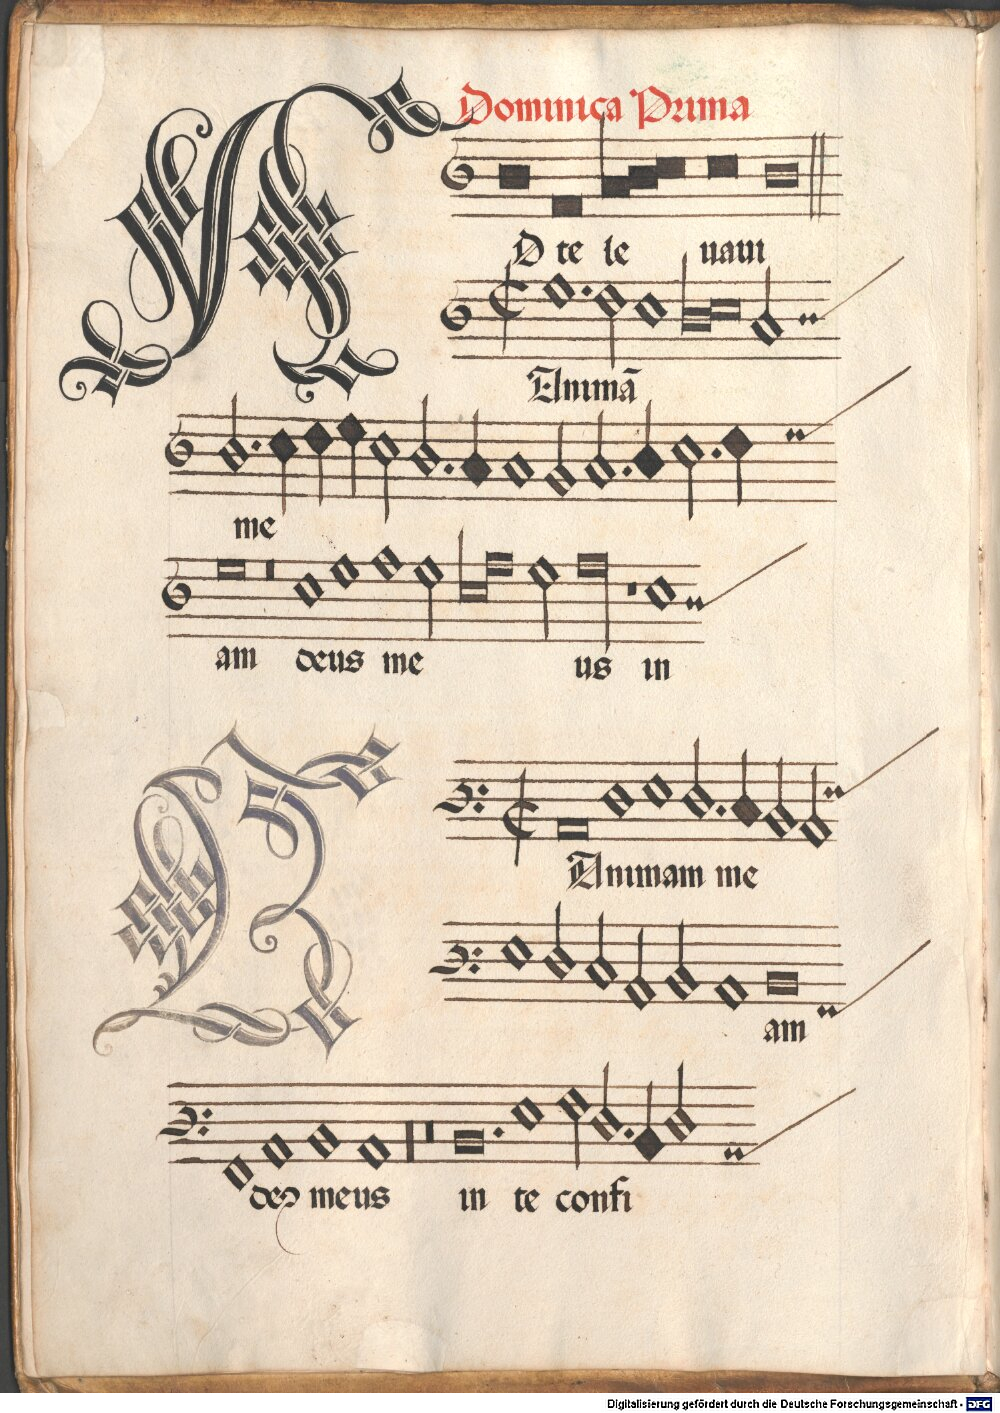 Dominica Prima
AD te le uaui
Animā
me
am deus me us in
Animam me
am
deꝰ meus in te confi
Digitalisierung gefördert durch die Deutsche Forschungsgemeinschaft - DFG